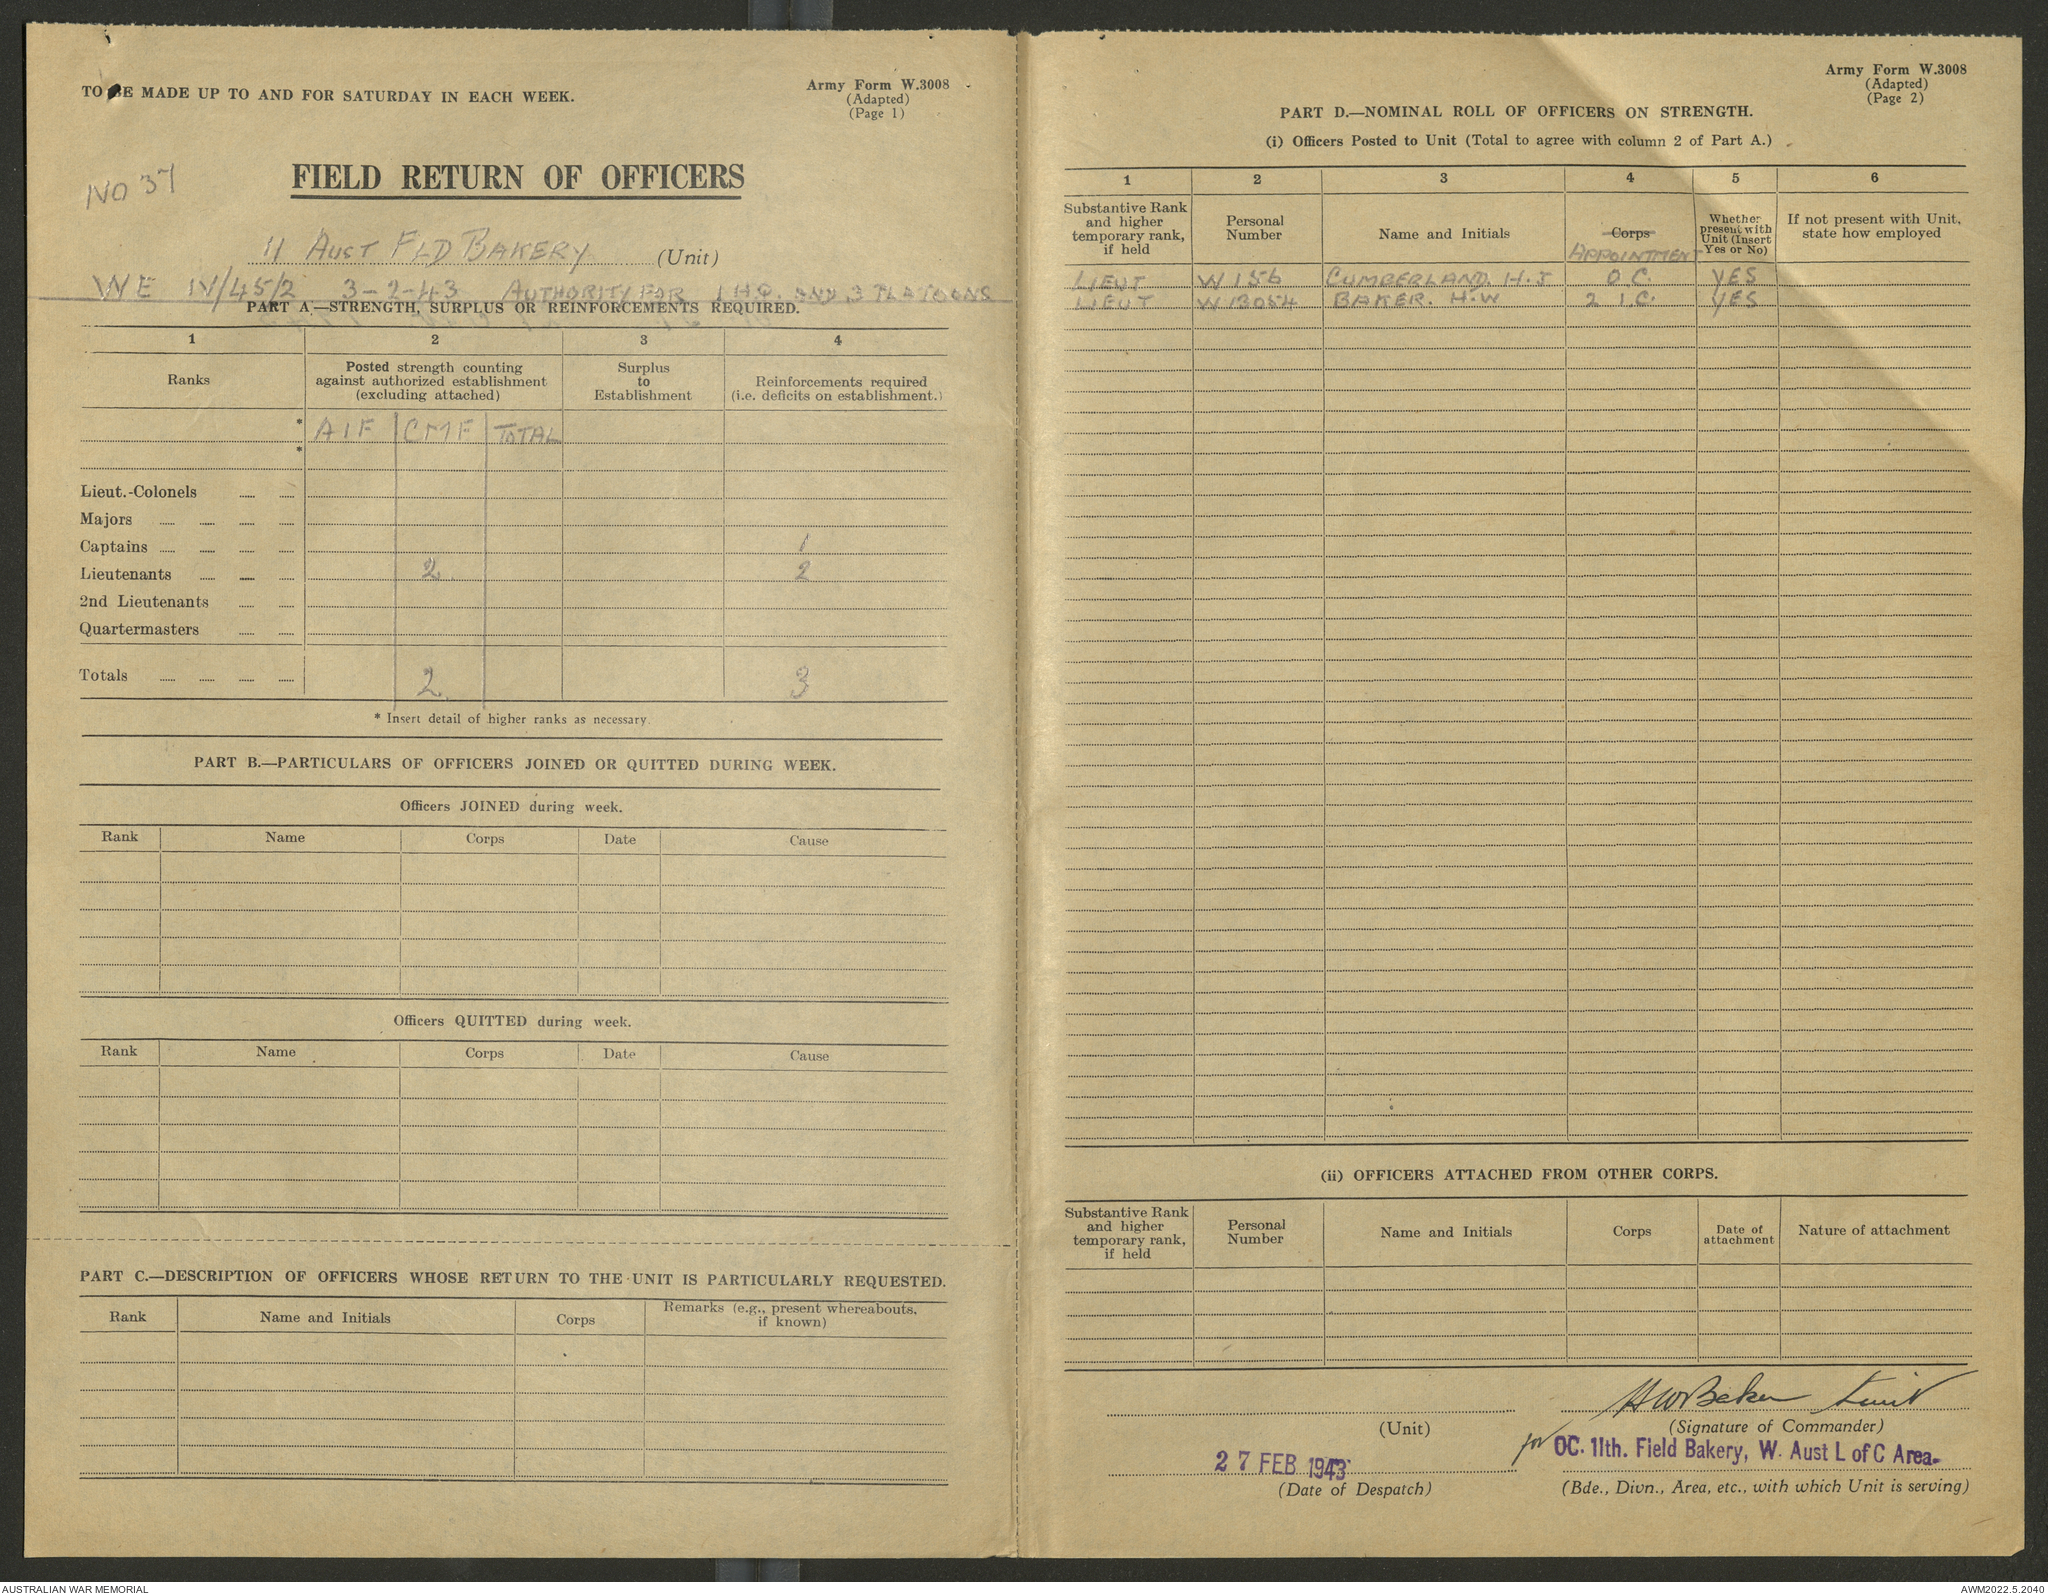 TO BE MADE UP TO AND FOR SATURDAY IN EACH WEEK.
Army Form W.3008
(Adapted)
(Page 1)
NO 37
FIELD RETURN OF OFFICERS
11 AUST FLD BAKERY (Unit)
WE IV/45/2 3-2-43 AUTHORITY FOR 1 HQ. AND 3 PLATOONS
PART A.—STRENGTH, SURPLUS OR REINFORCEMENTS REQUIRED.
1 2 3 4
Ranks
Posted strength counting
against authorized establishment
(excluding attached)
Surplus
to
Establishment
Reinforcements required
(i.e. deficits on establishment.)
* AIF CMF TOTAL
*
Lieut.-Colonels
Majors
Captains 1
Lieutenants 2 2
2nd Lieutenants
Quartermasters
Totals 2 3
* Insert detail of higher ranks as necessary
PART B.—PARTICULARS OF OFFICERS JOINED OR QUITTED DURING WEEK.
Officers JOINED during week.
Rank Name Corps Date Cause
Officers QUITTED during week.
Rank Name Corps Date Cause
PART C.—DESCRIPTION OF OFFICERS WHOSE RETURN TO THE UNIT IS PARTICULARLY REQUESTED.
Rank Name and Initials Corps
Remarks (e.g., present whereabouts,
if known)
Army Form W.3008
(Adapted)
(Page 2)
PART D.—NOMINAL ROLL OF OFFICERS ON STRENGTH.
(i) Officers Posted to Unit (Total to agree with column 2 of Part A.)
1 2 3 4 5 6
Substantive Rank
and higher
temporary rank,
if held
Personal
Number
Name and Initials
Corps
APPOINTMENT
Whether
present with
Unit (Insert
Yes or No)
If not present with Unit,
state how employed
LIEUT W156 CUMBERLAND. H.J O C. YES
LIEUT W13054 BAKER. H.W 2 I.C. YES
(ii) OFFICERS ATTACHED FROM OTHER CORPS.
Substantive Rank
and higher
temporary rank,
if held
Personal
Number
Name and Initials
Corps
Date of
attachment
Nature of attachment
HWBaker Lieut
(Unit)
(Signature of Commander)
for OC. 11th. Field Bakery, W. Aust L of C Area-
27 FEB 1943
(Date of Despatch)
(Bde., Divn., Area, etc., with which Unit is serving)
AUSTRALIAN WAR MEMORIAL
AWM2022.5.2040